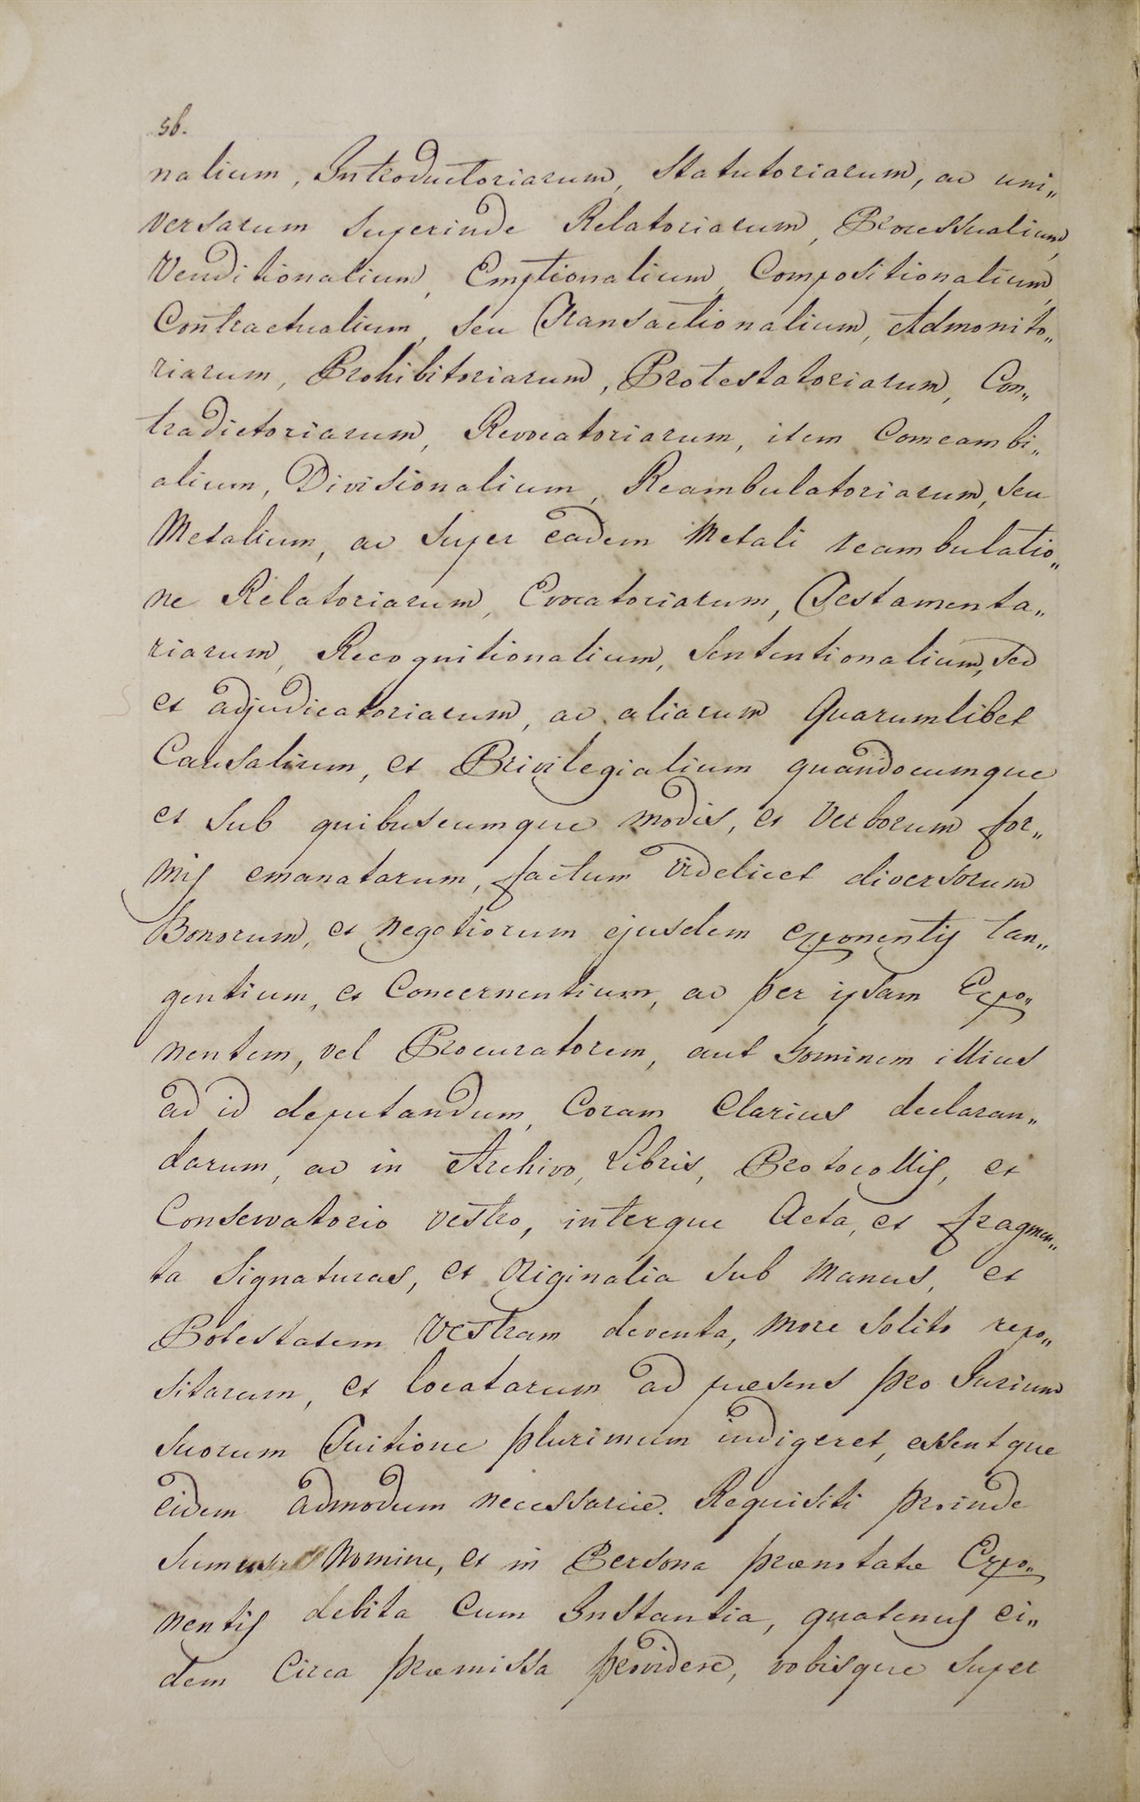 56.
nalium, Introductoriarum, Statutoriarum, ac uni„
versarum superinde Relatoriarum, Processualium,
Venditionalium, Emptionalium, Compositionalium,
Contractualium, seu Transactionalium, Admonito„
riarum, Prohibitoriarum, Protestatoriarum, Con„
tradictoriarum, Revocatoriarum, item Comcambi„
alium, Divisionalium, Reambulatoriarum, seu
Metalium, ac super eadem Metali reambulatio„
ne Relatoriarum, Evocatoriarum, Testamenta„
riarum, Recognitionalium, Sententionalium, sed
et adjudicatoriarum, ac aliarum quarumlibet
Causalium, et Privilegialium quandocumque
et sub quibuscumque modis, et Verborum for„
mis emanatarum, factum videlicet diversorum
Bonorum, et negotiorum ejusdem exponentis tan„
gentium, et Concernentium, ac per ipsam Expo„
nentem, vel Procuratorem, aut hominem illius
ad id deputandum, Coram Clarius declaran„
darum, ac in Archivo, Libris, Protocollis, et
Conservatorio vestro, interque Acta, et fragmen„
ta Signaturas, et Originalia sub Manus, et
Potestatem Vestram deventa, more solito repo„
sitarum, et locatarum ad præsens pro Jurium
suorum Tuitione plurimum indigeret, essentque
eidem admodum necessariæ. Requisiti proinde
sumus Nomine, et in Persona prænotatæ Expo„
nentis debita Cum Instantia, quatenus ei„
dem Circa præmissa providere, vobisque super